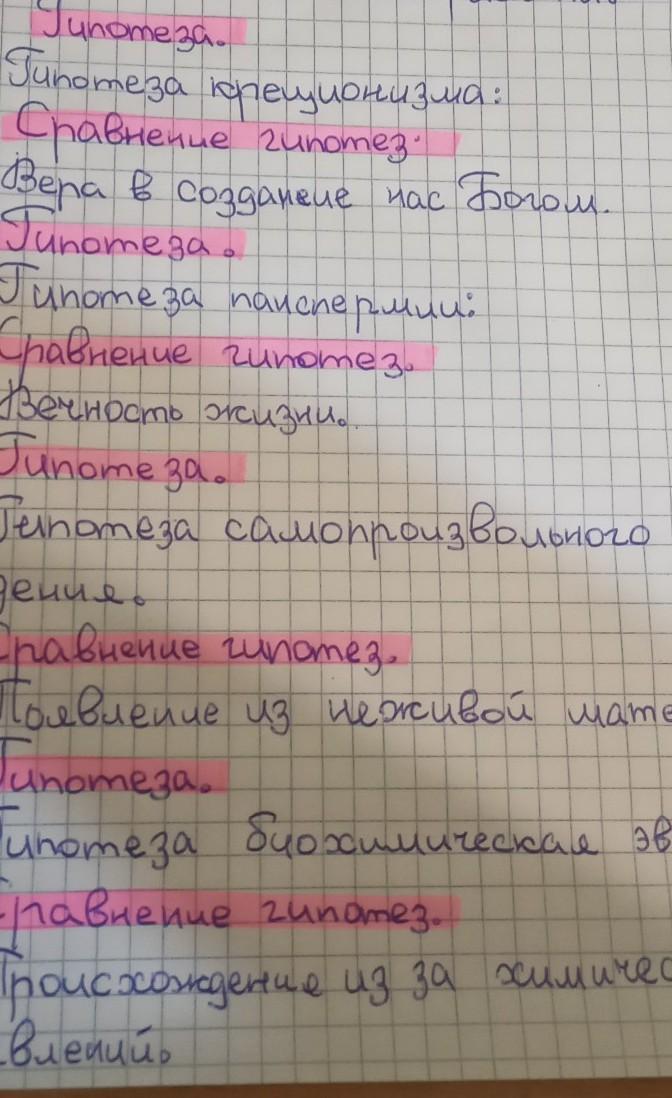 Гипотеза.
Гипотеза креционизма:
Сравнение гипотез.
Вера в создание нас Богом.
Гипотеза.
Гипотеза панспермии:
Сравнение гипотез.
Вечность жизни.
Гипотеза.
Гипотеза самопроизвольного
дения.
Сравнение гипотез.
Появление из неживой мате
Гипотеза.
Гипотеза биохимическая эв
Сравнение гипотез.
Происхождение из за химичес
влений.